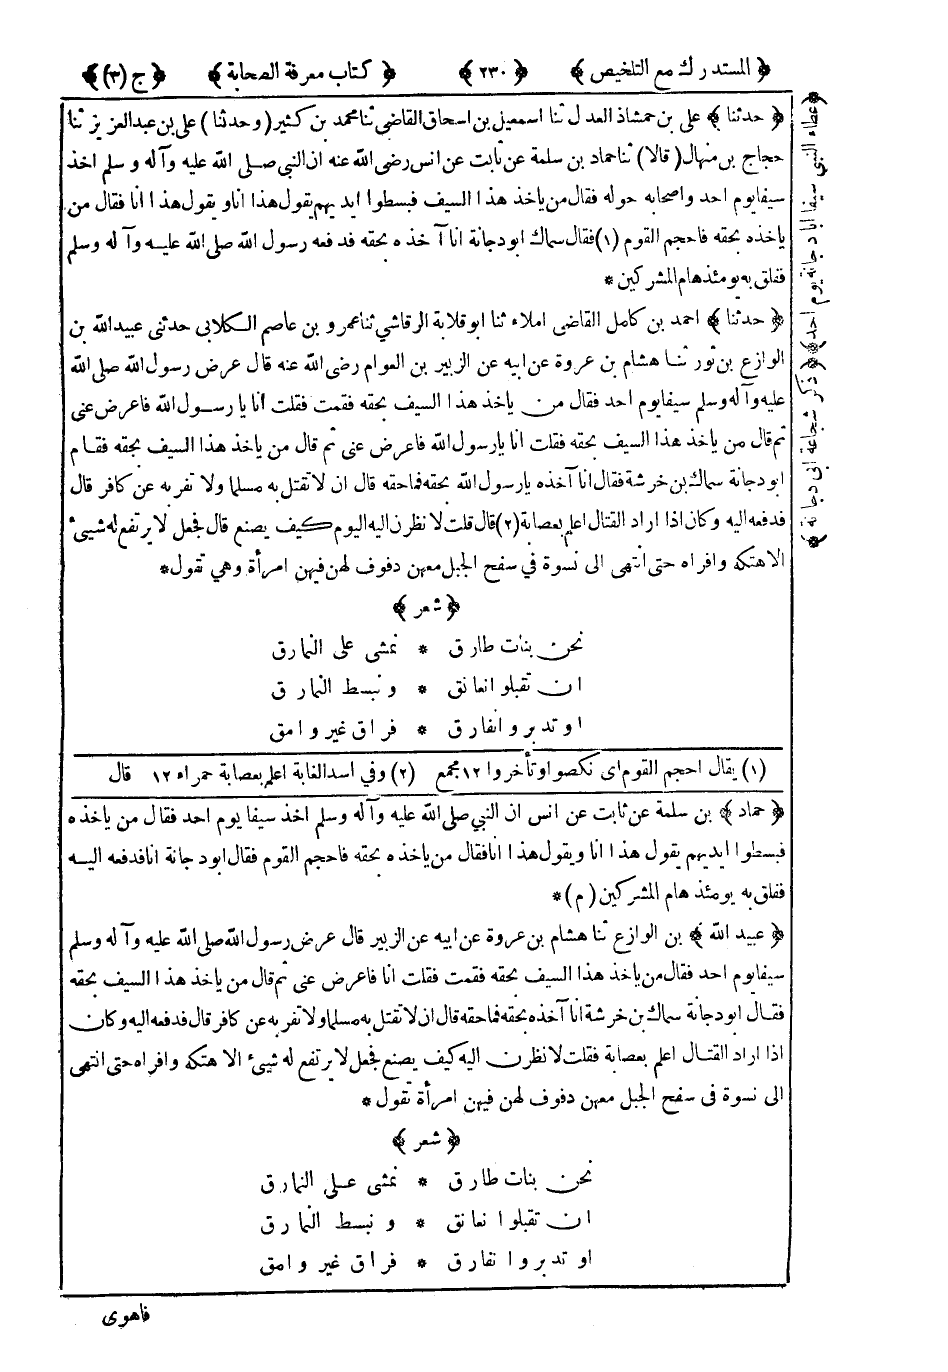 ﴿ المستدرك مع التلخيص ﴾ ﴿ ٢٣٠ ﴾ ﴿ كتاب معرفة الصحابة ﴾ ﴿ ج (٣) ﴾
﴿ حدثنا ﴾ على بن حمشاذ العدل ثنا اسمعيل بن اسحاق القاضى ثنا محمد بن كثير ( وحدثنا ) على بن عبد العزيز ثنا
حجاج بن منهال ( قالا ) ثنا حماد بن سلمة عن ثابت عن انس رضى الله عنه ان النبي صلى الله عليه وآله وسلم اخذ
سيفا يوم احد واصحابه حوله فقال من ياخذ هذا السيف فبسطوا ايديهم يقول هذا انا ويقول هذا انا فقال من
ياخذه بحقه فاحجم القوم (١) فقال سماك ابو دجانة انا آخذه بحقه فدفعه رسول الله صلى الله عليه وآله وسلم
ففلق به يومئذ هام المشركين *
﴿ حدثنا ﴾ احمد بن كامل القاضى املاء ثنا ابو قلابة الرقاشي ثنا عمرو بن عاصم الكلابى حدثنى عبيد الله بن
الوازع بن ثور ثنا هشام بن عروة عن ابيه عن الزبير بن العوام رضى الله عنه قال عرض رسول الله صلى الله
عليه وآله وسلم سيفا يوم احد فقال من ياخذ هذا السيف بحقه فقمت فقلت أنا يا رسول الله فاعرض عنى
ثم قال من ياخذ هذا السيف بحقه فقلت انا يا رسول الله فاعرض عنى ثم قال من ياخذ هذا السيف بحقه فقام
ابو دجانة سماك بن خرشة فقال انا آخذه يا رسول الله بحقه فما حقه قال ان لا تقتل به مسلما ولا تفر به عن كافر قال
فدفعه اليه وكان اذا اراد القتال اعلم بعصابة (٢) قال قلت لا نظرن اليه اليوم كيف يصنع قال فجعل لا يرتفع له شيئ
الا هتكه وافراه حتى انتهى الى نسوة في سفح الجبل معهن دفوف لهن فيهن امرأة وهي تقول *
﴿ شعر ﴾
نحن بنات طارق * نمشى على النمارق
ان تقبلوا نعانق * ونبسط النمارق
او تدبروا نفارق * فراق غير وامق
(١) يقال احجم القوم اى نكصوا وتأخروا ١٢ مجمع (٢) وفي اسد الغابة اعلم بعصابة حمراء ١٢ قال
﴿ حماد ﴾ بن سلمة عن ثابت عن انس ان النبي صلى الله عليه وآله وسلم اخذ سيفا يوم احد فقال من ياخذه
فبسطوا ايديهم يقول هذا انا ويقول هذا انا فقال من ياخذه بحقه فاحجم القوم فقال ابو دجانة انا فدفعه اليه
ففلق به يومئذ هام المشركين ( م ) *
﴿ عبيد الله ﴾ بن الوازع ثنا هشام بن عروة عن ابيه عن الزبير قال عرض رسول الله صلى الله عليه وآله وسلم
سيفا يوم احد فقال من ياخذ هذا السيف بحقه فقمت فقلت انا فاعرض عنى ثم قال من ياخذ هذا السيف بحقه
فقال ابو دجانة سماك بن خرشة انا آخذه بحقه فما حقه قال ان لا تقتل به مسلما ولا تفر به عن كافر قال فدفعه اليه وكان
اذا اراد القتال اعلم بعصابة فقلت لا نظرن اليه كيف يصنع فجعل لا يرتفع له شيئ الا هتكه وافراه حتى انتهى
الى نسوة فى سفح الجبل معهن دفوف لهن فيهن امرأة تقول *
﴿ شعر ﴾
نحن بنات طارق * نمشى على النمارق
ان تقبلوا نعانق * ونبسط النمارق
او تدبروا نفارق * فراق غير وامق
فاهوى
﴿ عطاء النبي سيفا ابا دجانة يوم احد ﴾ ﴿ ذكر شجاعة ابى دجانة ﴾